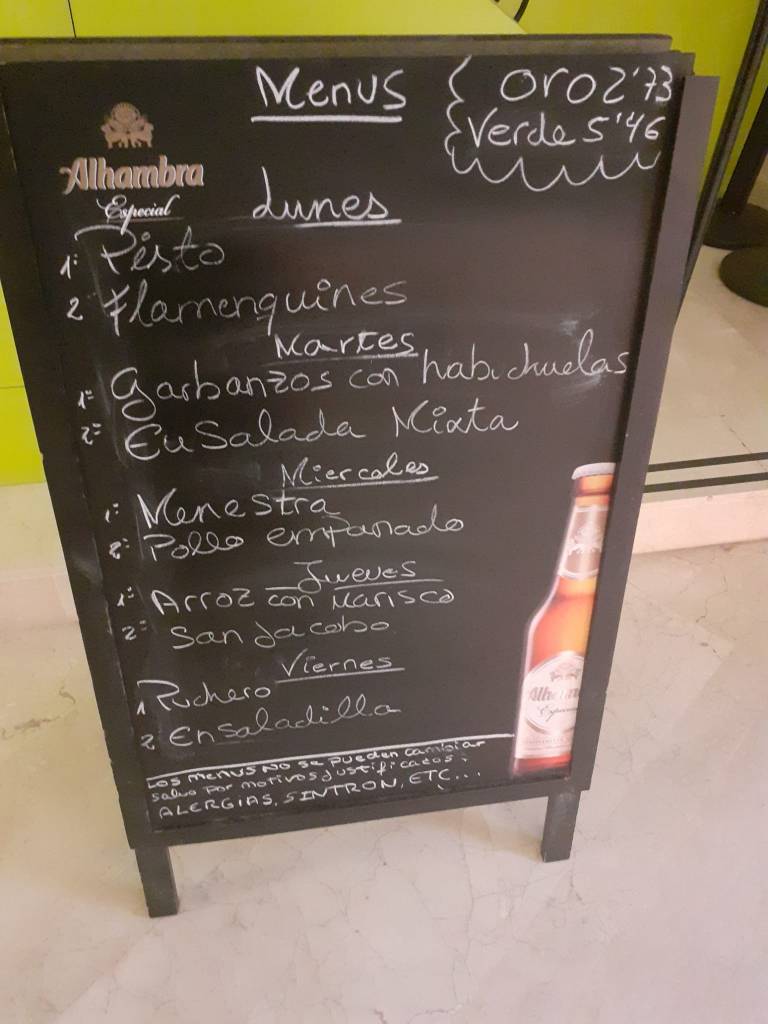 Menus
Oro 2'73
Verde 5'46
Alhambra
Especial
Lunes
1º Pisto
2 Flamenquines
Martes
1º Garbanzos con habichuelas
2º Ensalada Mixta
Miercoles
1º Menestra
2º Pollo empanado
Jueves
1º Arroz con Marisco
2º San Jacobo
Viernes
1 Puchero
2 Ensaladilla
Los menus no se pueden cambiar
salvo por motivos justificados:
ALERGIAS, SINTRON, ETC...
Alhambra
Especial